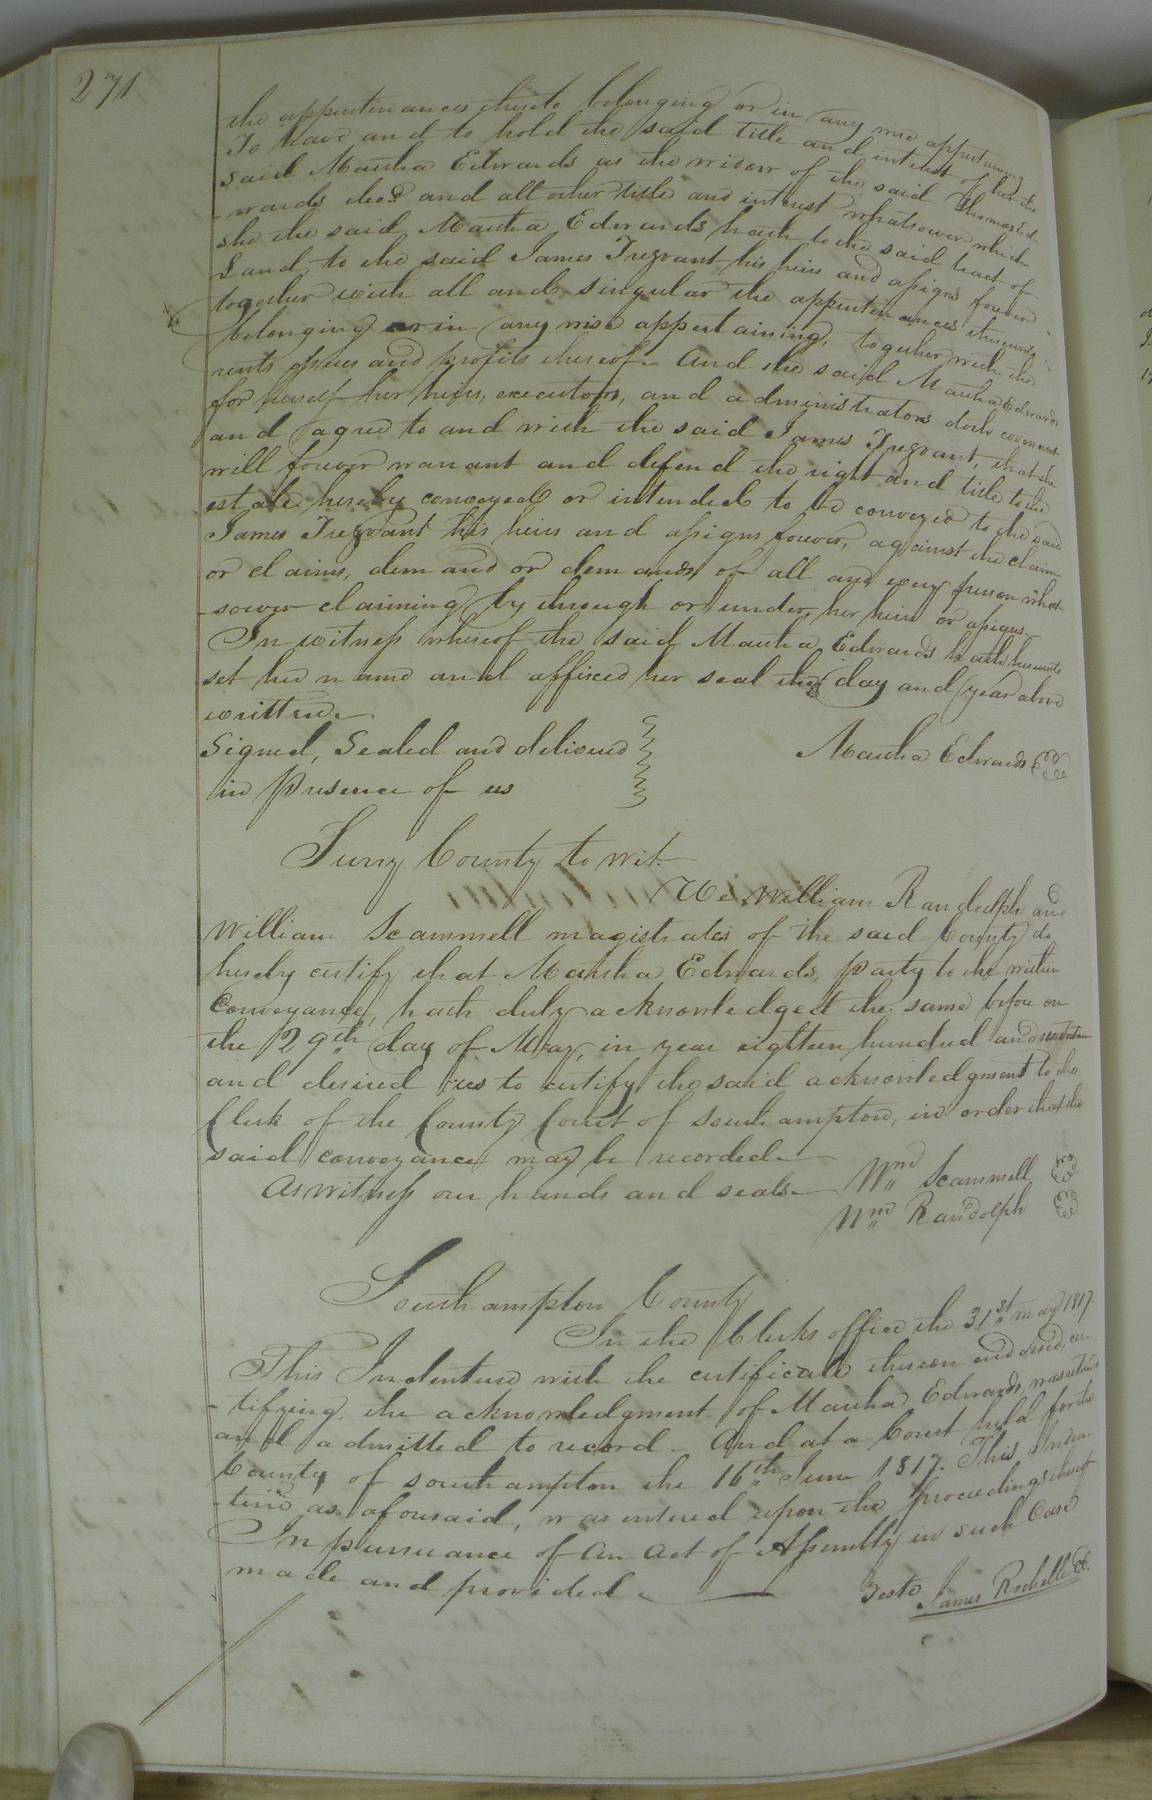 271
the appertinances thereto belonging or in any wise appertaining
To have and to hold the said title and interest of her the
said Martha Edwards as the widow of the said Thomas Ed-
-wards decd and all other title and interest whatsoever which
she the said Martha Edwards hath to the said tract of
Land, to the said James Trezvant his heirs and assigns forever
together with all and singular the appertinances thereunto
belonging or in any wise appertaining, together with the
rents issues and profits thereof. And the said Martha Edwards
for herself her heirs, executors, and administrators doth covenant
and agree to and with the said James Trezvant, that she
will forever warrant and defend the right and title to the
estate hereby conveyed or intended to be conveyed to the said
James Trezvant his heirs and assigns forever, against the claim
or claims, demand or demands of all and every person what-
-soever claiming by through or under, her heirs or assigns
In witness whereof the said Martha Edwards hath hereunto
set her name and affixed her seal the day and year above
written.
Signed, Sealed and delivered
in Presence of us
Martha Edwards
Surry County to wit.
We William Randolph and
William Scammell magistrates of the said County do
hereby certify that Martha Edwards, Party to the within
Conveyance, hath duly acknowledged the same before on
the 29th day of May, in year eighteen hundred and seventeen
and desired us to certify the said acknowledgment to the
Clerk of the County Court of Southampton, in order that the
said conveyance may be recorded
As witness our hands and seals. Wm Scammell
Wm Randolph
Southampton County
In the Clerks office the 31st May 1817.
This Indenture with the certificate thereon endorsed, cer-
-tifying, the acknowledgment of Martha Edwards, was received
and admitted to record. And at a Court held for the
County of Southampton the 16th June 1817. This Inden-
-ture as aforesaid, was entered upon the proceedings thereof
In pursuance of an act of Assembly in such Case
made and provided.
Teste James Rochelle Cl.